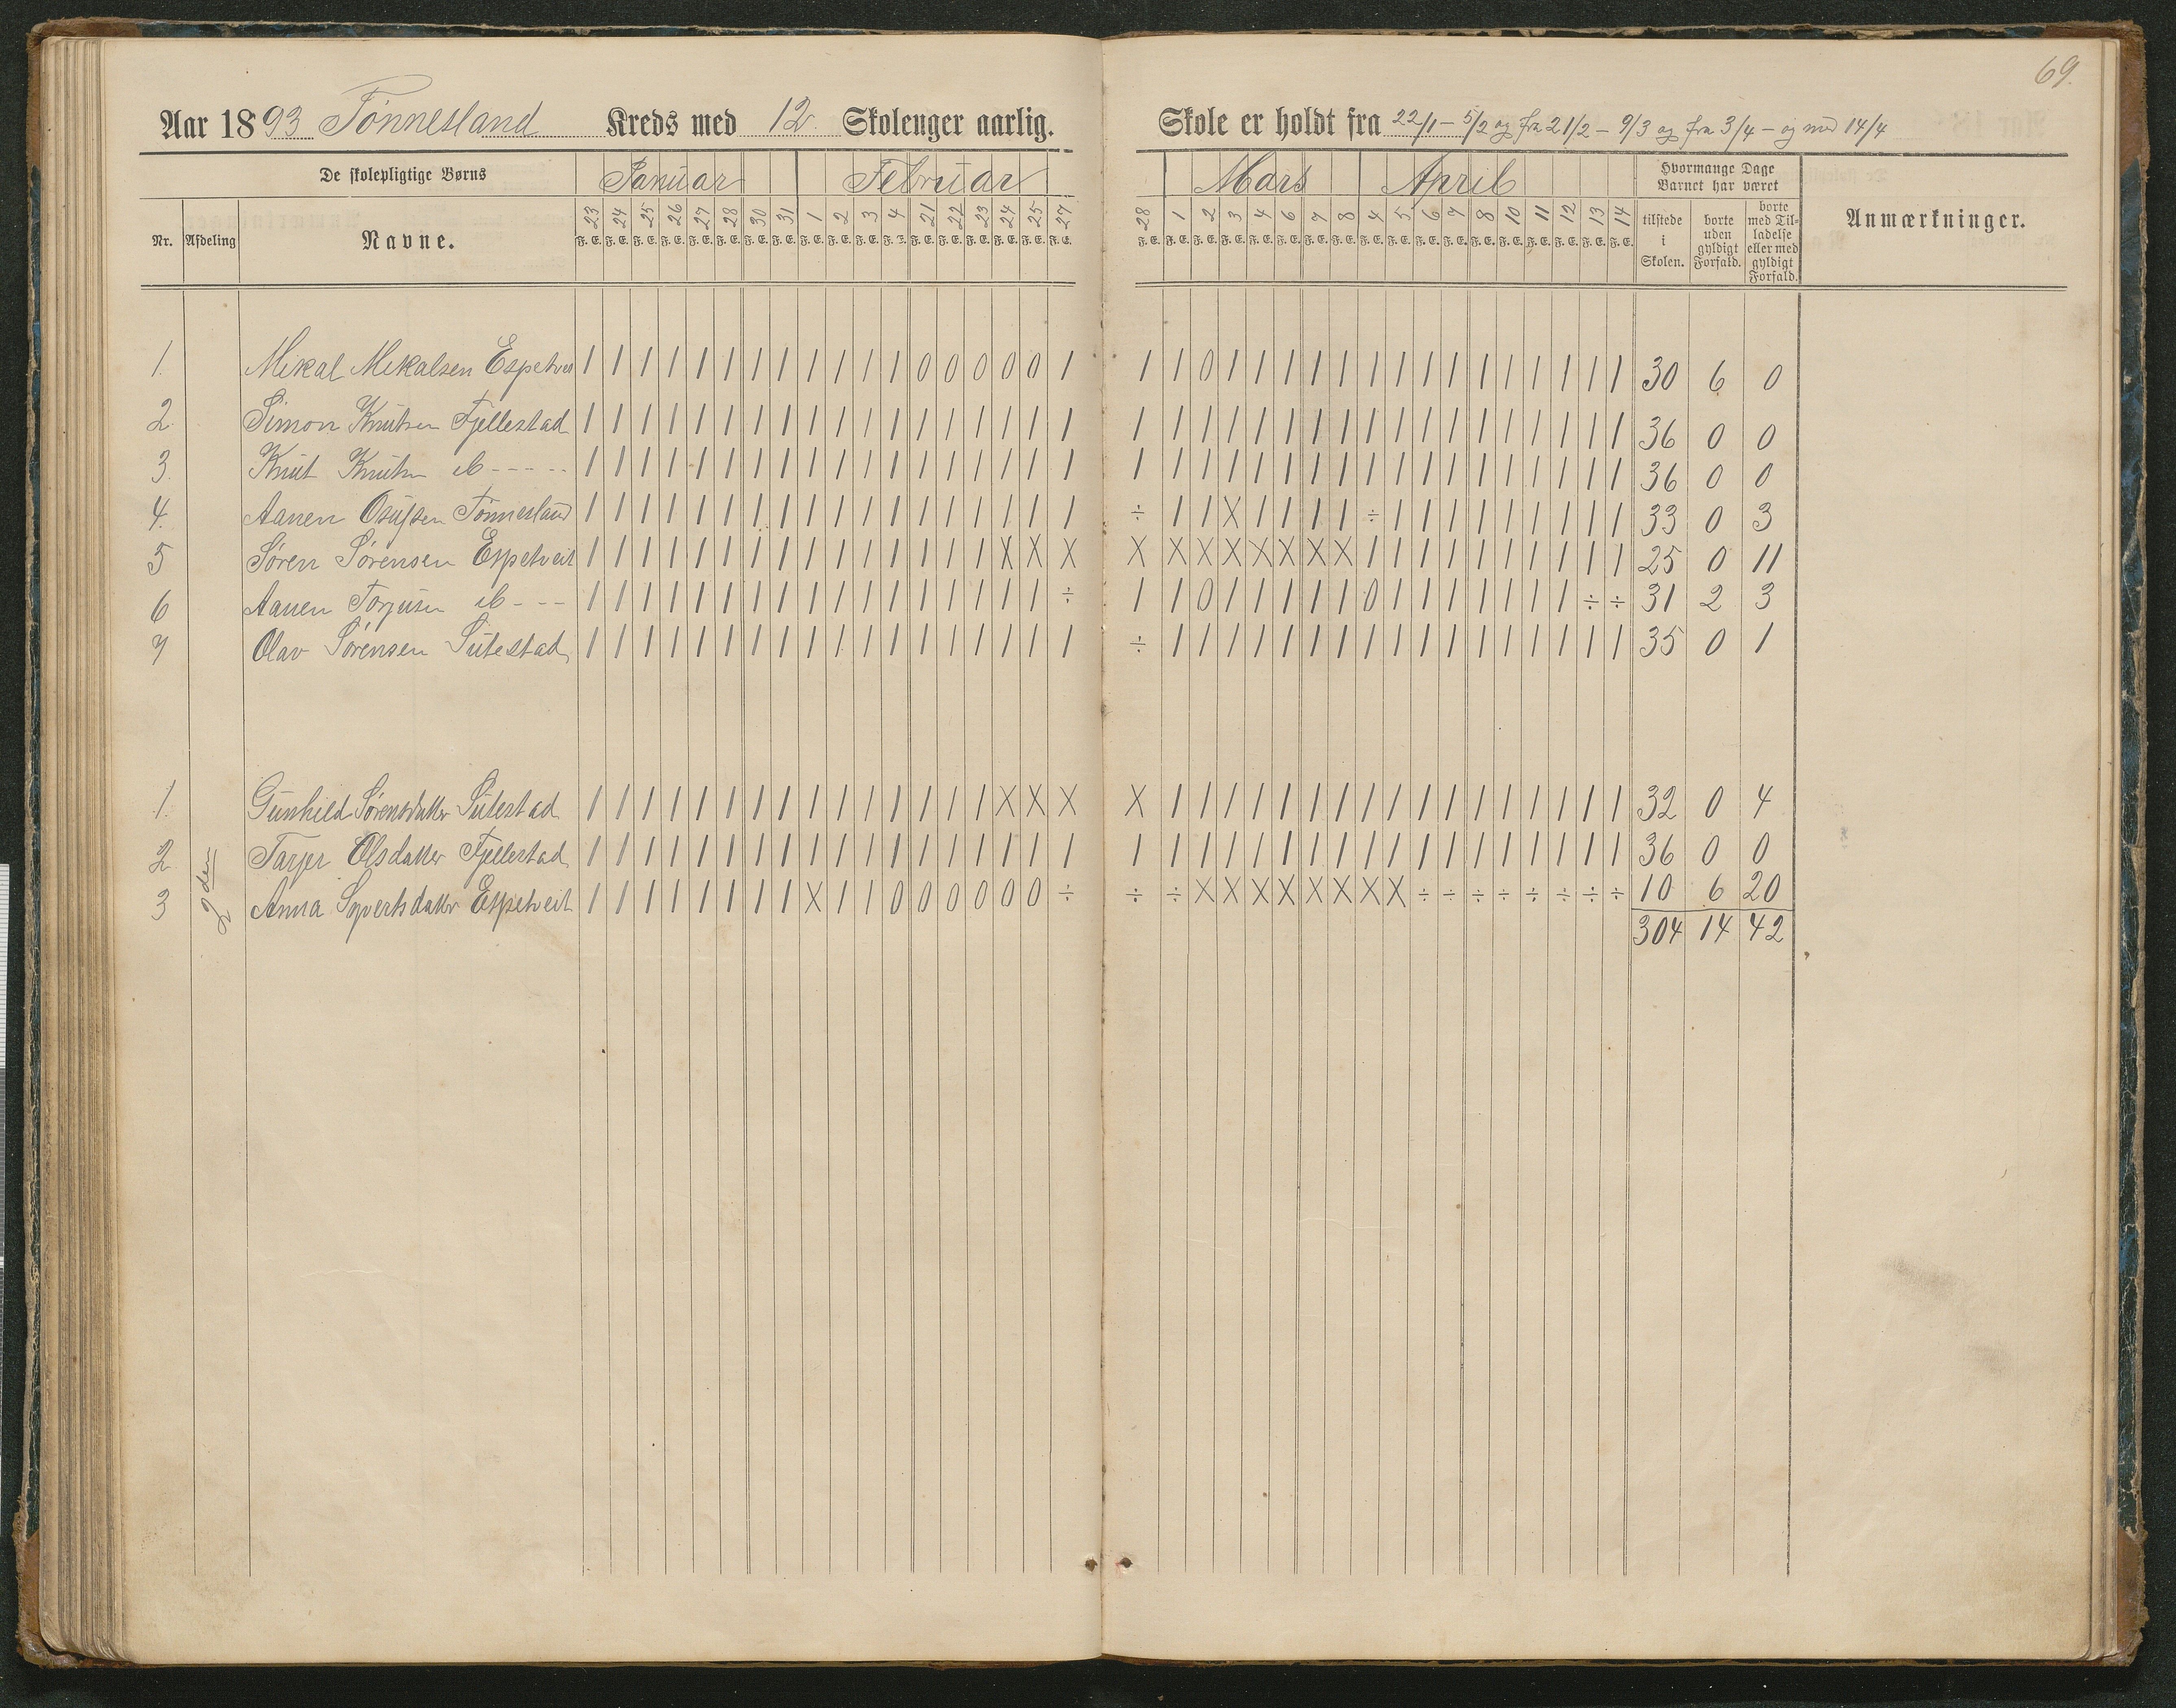 69.
Aar 1893 Tönnesland Kreds med 12 Skoleuger aarlig.
Skole er holdt fra 22/1 – 5/2 og fra 21/2 – 9/3 og fra 3/4 – og med 14/4
De skolepligtige Børns
Januar Februar
Mars April
Hvormange Dage
Barnet har været
Nr. Afdeling Navne.
23 24 25 26 27 28 30 31 1 2 3 4 21 22 23 24 25 27
28 1 2 3 4 6 7 8 4 5 6 7 8 10 11 12 13 14
F. E. F. E. F. E. F. E. F. E. F. E. F. E. F. E. F. E. F. E. F. E. F. E. F. E. F. E. F. E. F. E. F. E. F. E.
F. E. F. E. F. E. F. E. F. E. F. E. F. E. F. E. F. E. F. E. F. E. F. E. F. E. F. E. F. E. F. E. F. E. F. E.
tilstede
i
Skolen.
borte
uden
gyldigt
Forfald.
borte
med Til-
ladelse
eller med
gyldigt
Forfald.
Anmærkninger.
1. Mikal Mikalsen Espetvei 1 1 1 1 1 1 1 1 1 1 1 1 0 0 0 0 0 1 1 1 0 1 1 1 1 1 1 1 1 1 1 1 1 1 1 1 30 6 0
2. Simon Knutsen Fjellestad 1 1 1 1 1 1 1 1 1 1 1 1 1 1 1 1 1 1 1 1 1 1 1 1 1 1 1 1 1 1 1 1 1 1 1 1 36 0 0
3. Knut Knutsn ib - - - - - 1 1 1 1 1 1 1 1 1 1 1 1 1 1 1 1 1 1 1 1 1 1 1 1 1 1 1 1 1 1 1 1 1 1 1 1 36 0 0
4. Aanen Osufsen Tönnesland 1 1 1 1 1 1 1 1 1 1 1 1 1 1 1 1 1 1 ÷ 1 1 X 1 1 1 1 ÷ 1 1 1 1 1 1 1 1 1 33 0 3
5 Sören Sörensen Espetveit 1 1 1 1 1 1 1 1 1 1 1 1 1 1 1 X X X X X X X X X X X 1 1 1 1 1 1 1 1 1 1 25 0 11
6 Aanen Torjusen ib - - - 1 1 1 1 1 1 1 1 1 1 1 1 1 1 1 1 1 ÷ 1 1 0 1 1 1 1 1 0 1 1 1 1 1 1 1 ÷ ÷ 31 2 3
7 Olav Sörensen Sutestad 1 1 1 1 1 1 1 1 1 1 1 1 1 1 1 1 1 1 ÷ 1 1 1 1 1 1 1 1 1 1 1 1 1 1 1 1 1 35 0 1
1. Gunhild Sörensdatter Sutestad 1 1 1 1 1 1 1 1 1 1 1 1 1 1 1 X X X X 1 1 1 1 1 1 1 1 1 1 1 1 1 1 1 1 1 32 0 4
2. Tarjer Olsdatter Fjellestad 1 1 1 1 1 1 1 1 1 1 1 1 1 1 1 1 1 1 1 1 1 1 1 1 1 1 1 1 1 1 1 1 1 1 1 1 36 0 0
3 2den Anna Syvertsdatter Espetveit 1 1 1 1 1 1 1 1 X 1 1 0 0 0 0 0 0 ÷ ÷ ÷ X X X X X X X X ÷ ÷ ÷ ÷ ÷ ÷ ÷ ÷ 10 6 20
304 14 42